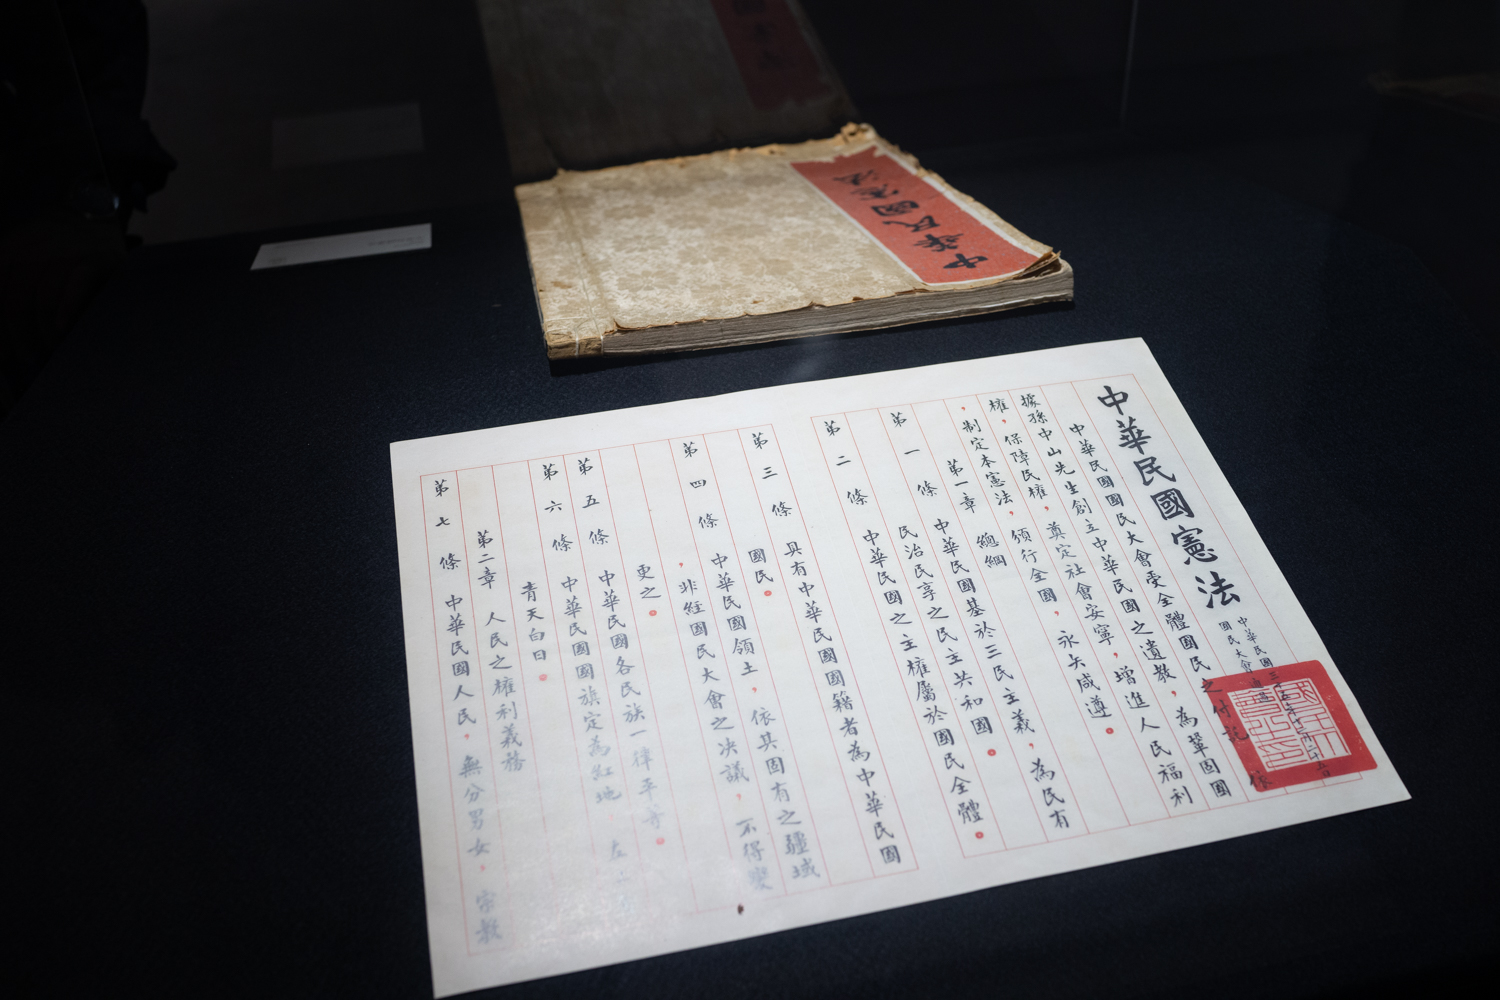 中華民國憲法
中華民國憲法
中華民國三十五年十二月二十五日
國民大會通過
中華民國國民大會受全體國民之付託，依
據孫中山先生創立中華民國之遺教，為鞏固國
權，保障民權，奠定社會安寧，增進人民福利
，制定本憲法，頒行全國，永矢咸遵。
第一章 總綱
第一條 中華民國基於三民主義，為民有
民治民享之民主共和國。
第二條 中華民國之主權屬於國民全體。
第三條 具有中華民國國籍者為中華民國
國民。
第四條 中華民國領土，依其固有之疆域
，非經國民大會之決議，不得變
更之。
第五條 中華民國各民族一律平等。
第六條 中華民國國旗定為紅地，左
青天白日。
第二章 人民之權利義務
第七條 中華民國人民，無分男女，宗教